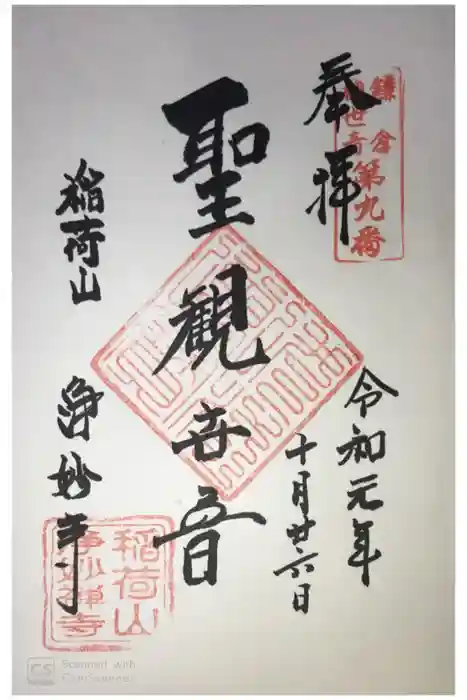 奉拝
鎌倉
観世音
第九番
聖観世音
令和元年
十月廿六日
稲荷山
浄妙寺
稲荷山
浄妙禅寺
CS
Scanned with
CamScanner